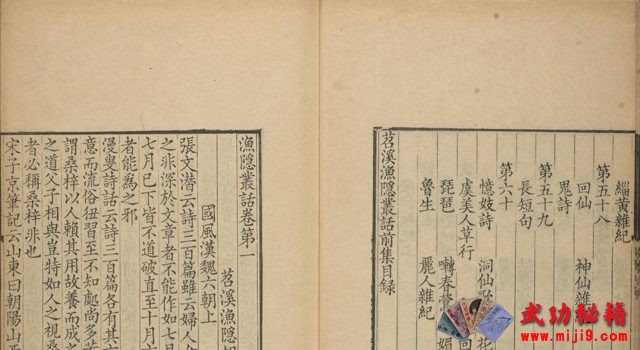 緇黄雜紀
第五十八
回仙 神仙雜
鬼詩
第五十九
長短句
第六十
憶妓詩 洞仙
虞美人草行
琵琶 囀春
魯生 麗人雜紀
苕溪漁隱叢話前集目録
漁隱叢話卷第一
苕溪漁隱
國風漢魏六朝上
張文潛云詩三百篇雖云婦人
之非深於文章者不能作如七
七月已下皆不道破直至十月
者能爲之邪
漫叟詩話云詩三百篇各有其
意而流俗狃習至不知處尚多
謂桑梓以人賴其用故養而成
之道父子相與豈特如人之視桑
者必稱桑梓非也
宋子京筆記云山東曰朝陽山
武功秘籍
www.miji9.com